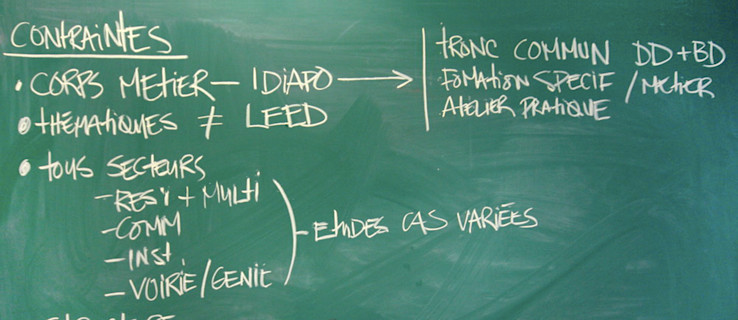 CONTRAINTES
• CORPS METIER — 1 DIAPO →
TRONC COMMUN DD+BD
FOMATION SPECIF / METIER
ATELIER PRATIQUE
• THÉMATIQUES ≠ LEED
• TOUS SECTEURS
- RESI + MULTI
- COMM
- INST.
- VOIRIE/GENIE
- ETUDES CAS VARIÉES